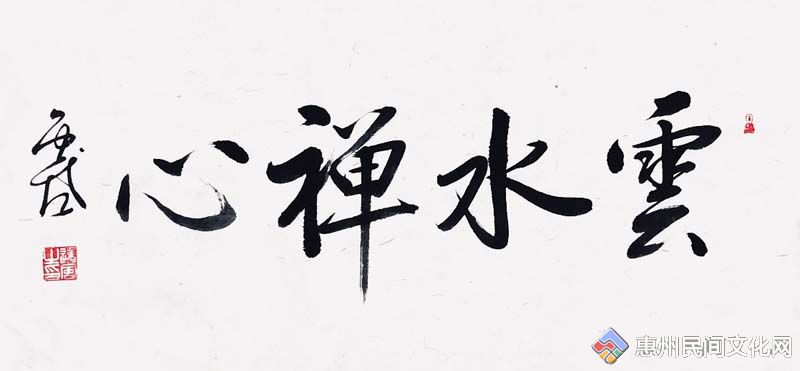 雲水禅心
惠州民间文化网